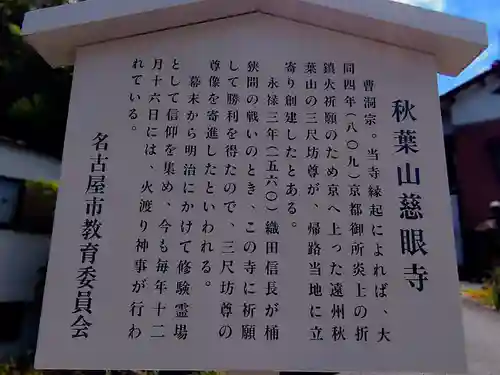 秋葉山慈眼寺
曹洞宗。当寺縁起によれば、大
同四年(八〇九)京都御所炎上の折
鎮火祈願のため京へ上った遠州秋
葉山の三尺坊尊が、帰路当地に立
寄り創建したとある。
永禄三年(一五六〇)織田信長が桶
狭間の戦いのとき、この寺に祈願
して勝利を得たので、三尺坊尊の
尊像を寄進したといわれる。
幕末から明治にかけて修験霊場
として信仰を集め、今も毎年十二
月十六日には、火渡り神事が行わ
れている。
名古屋市教育委員会